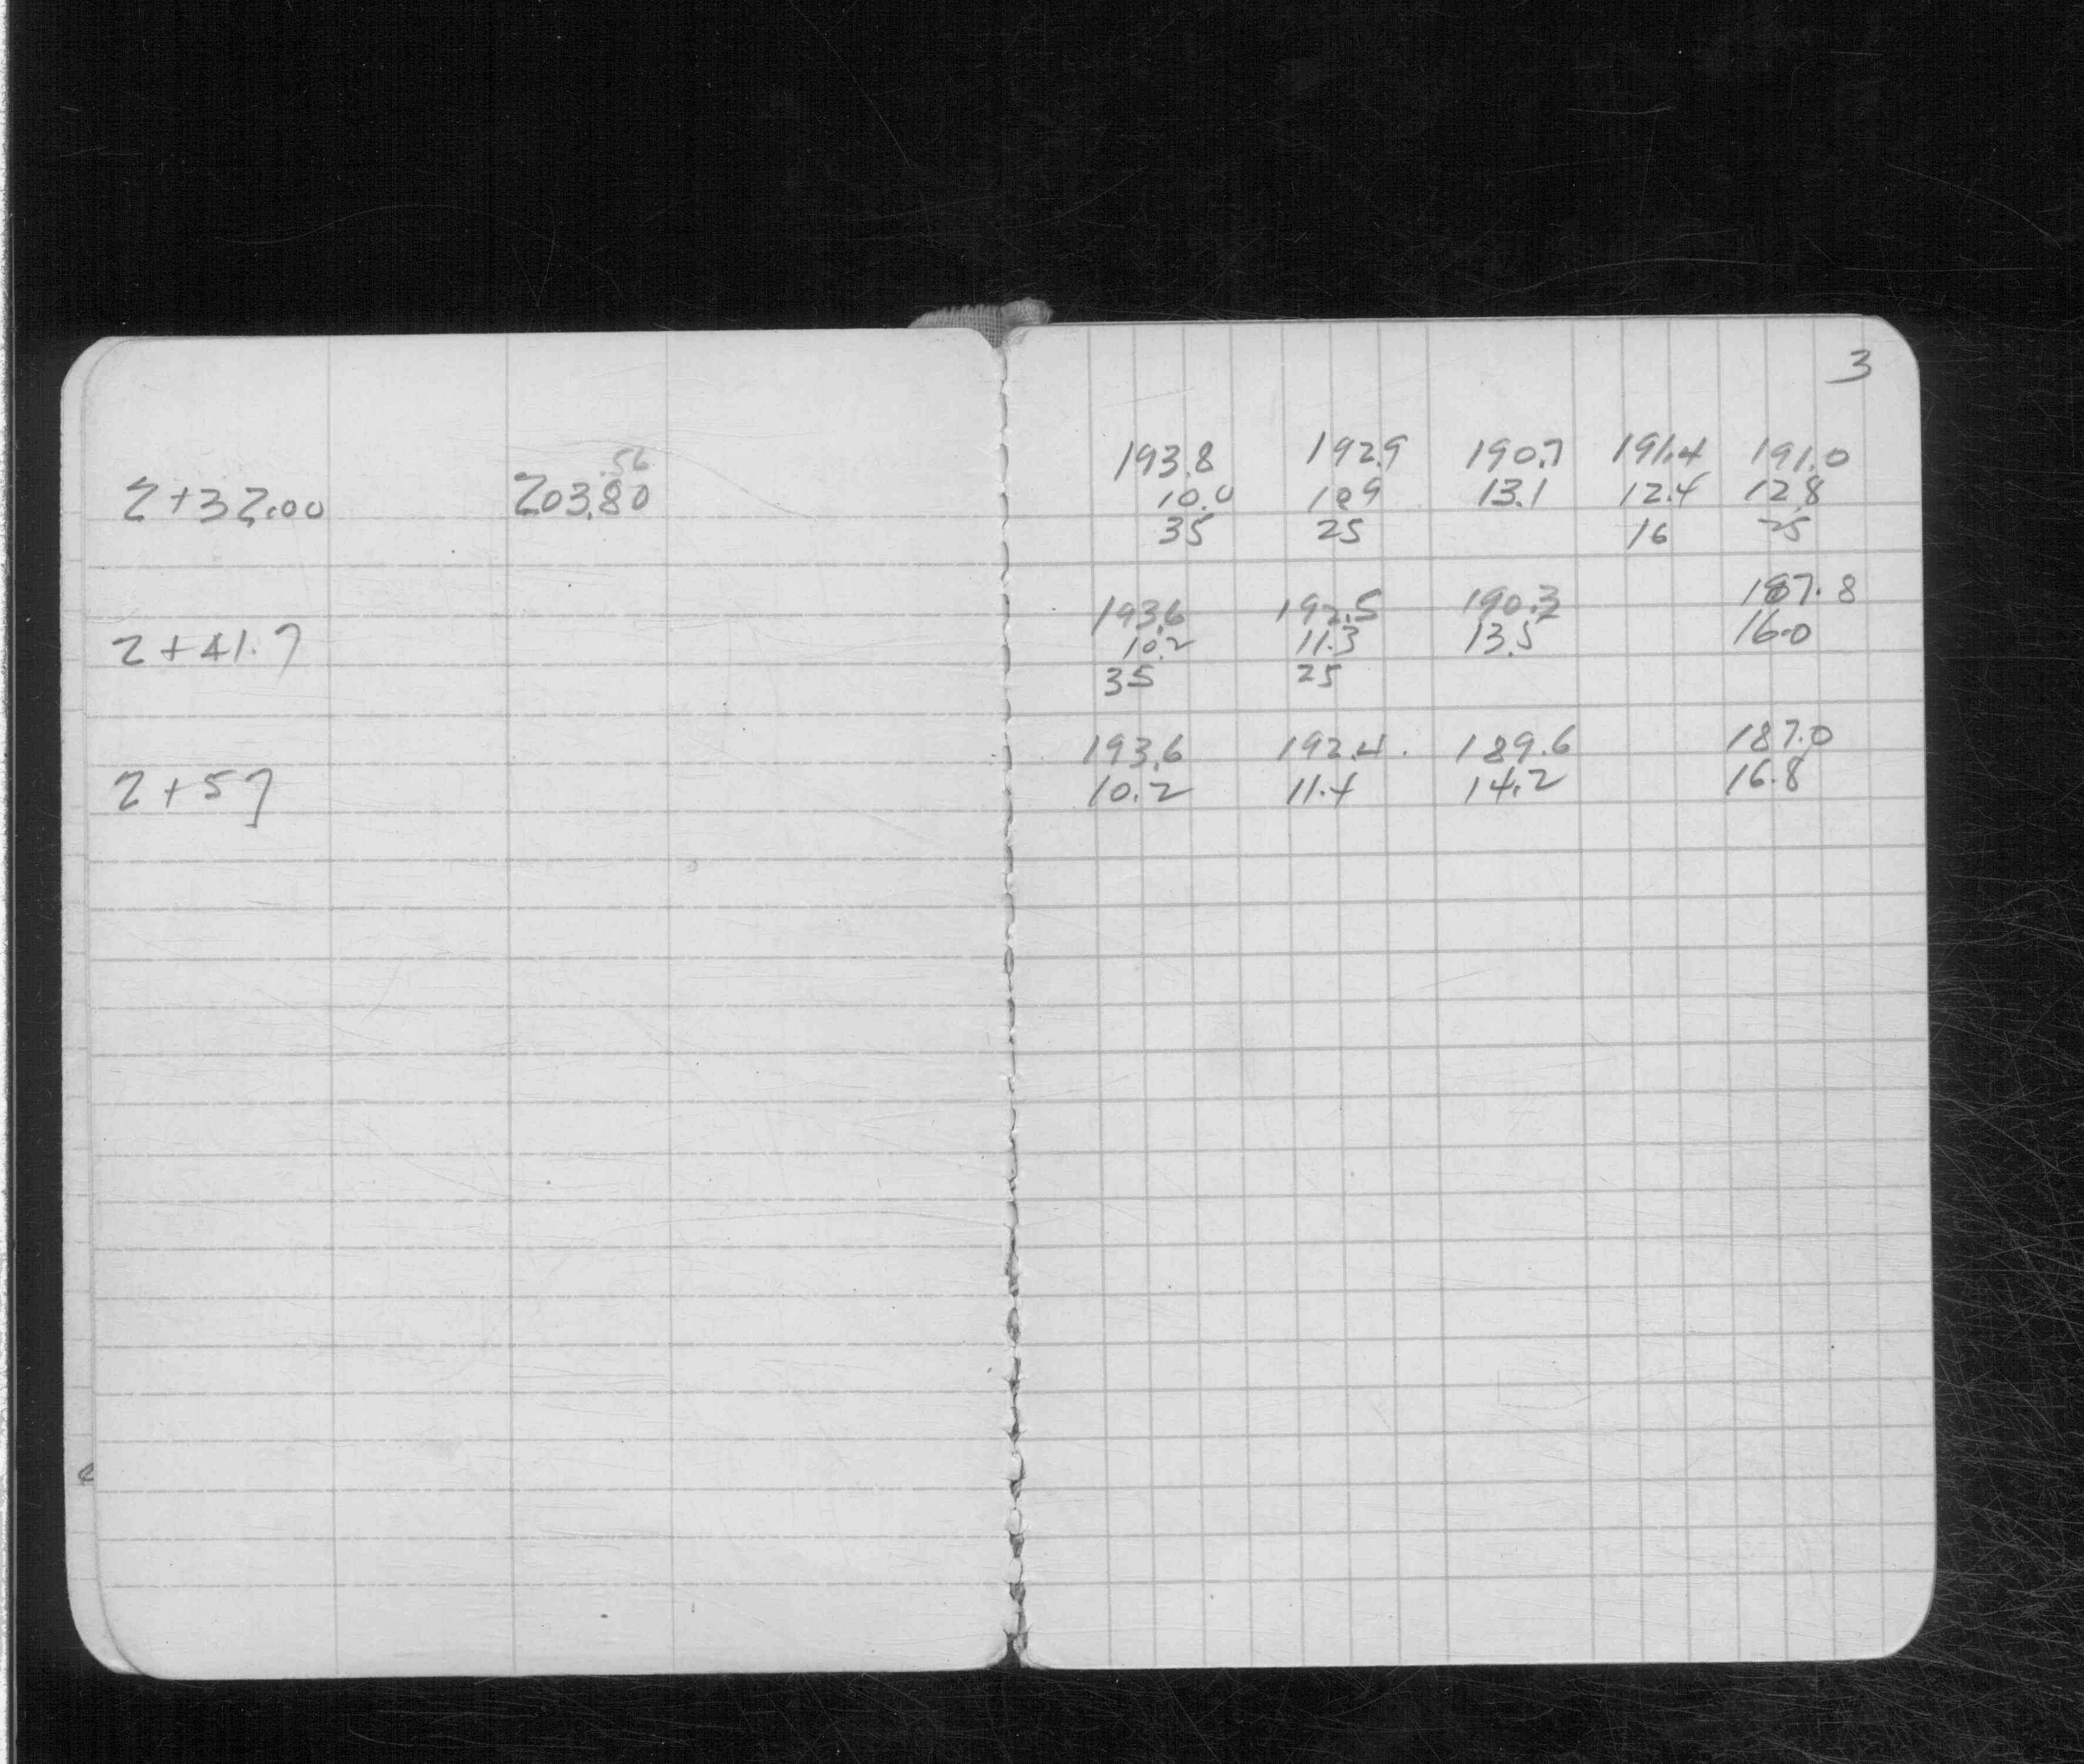 3
.56
2+32.00 203.80 193.8 192.9 190.7 191.4 191.0
10.0 10.9 13.1 12.4 12.8
35 25 16 25
193.6 192.5 190.3 187.8
2+41.7 10.2 11.3 13.5 16.0
35 25
193.6 192.4 189.6 187.0
2+57 10.2 11.4 14.2 16.8